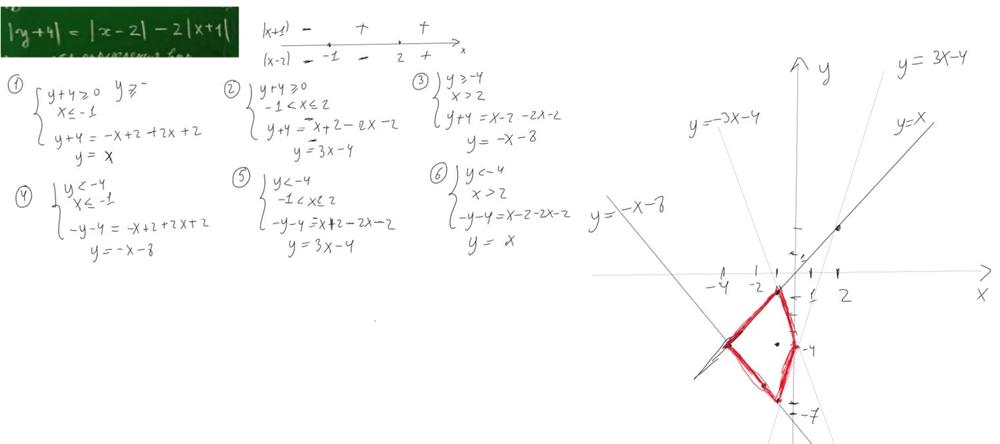 |y+4| = |x-2| - 2|x+1|
|x+1| - + +
(x-2) - -1 - 2 + x
①
y+4≥0 y≥-
x≤-1
y+4 = -x+2+2x+2
y = x
②
y+4≥0
-1<x≤2
y+4 = -x+2-2x-2
y=3x-4
③
y≥-4
x>2
y+4 = x-2-2x-2
y=-x-8
④
y<-4
x≤-1
-y-4 = -x+2+2x+2
y=-x-8
⑤
y<-4
-1<x≤2
-y-4=-x+2-2x-2
y=3x-4
⑥
y<-4
x>2
-y-4=x-2-2x-2
y = x
y
y = 3x-4
y=-3x-4
y=x
y=-x-8
1
-4 -2 1 2 x
-4
-7